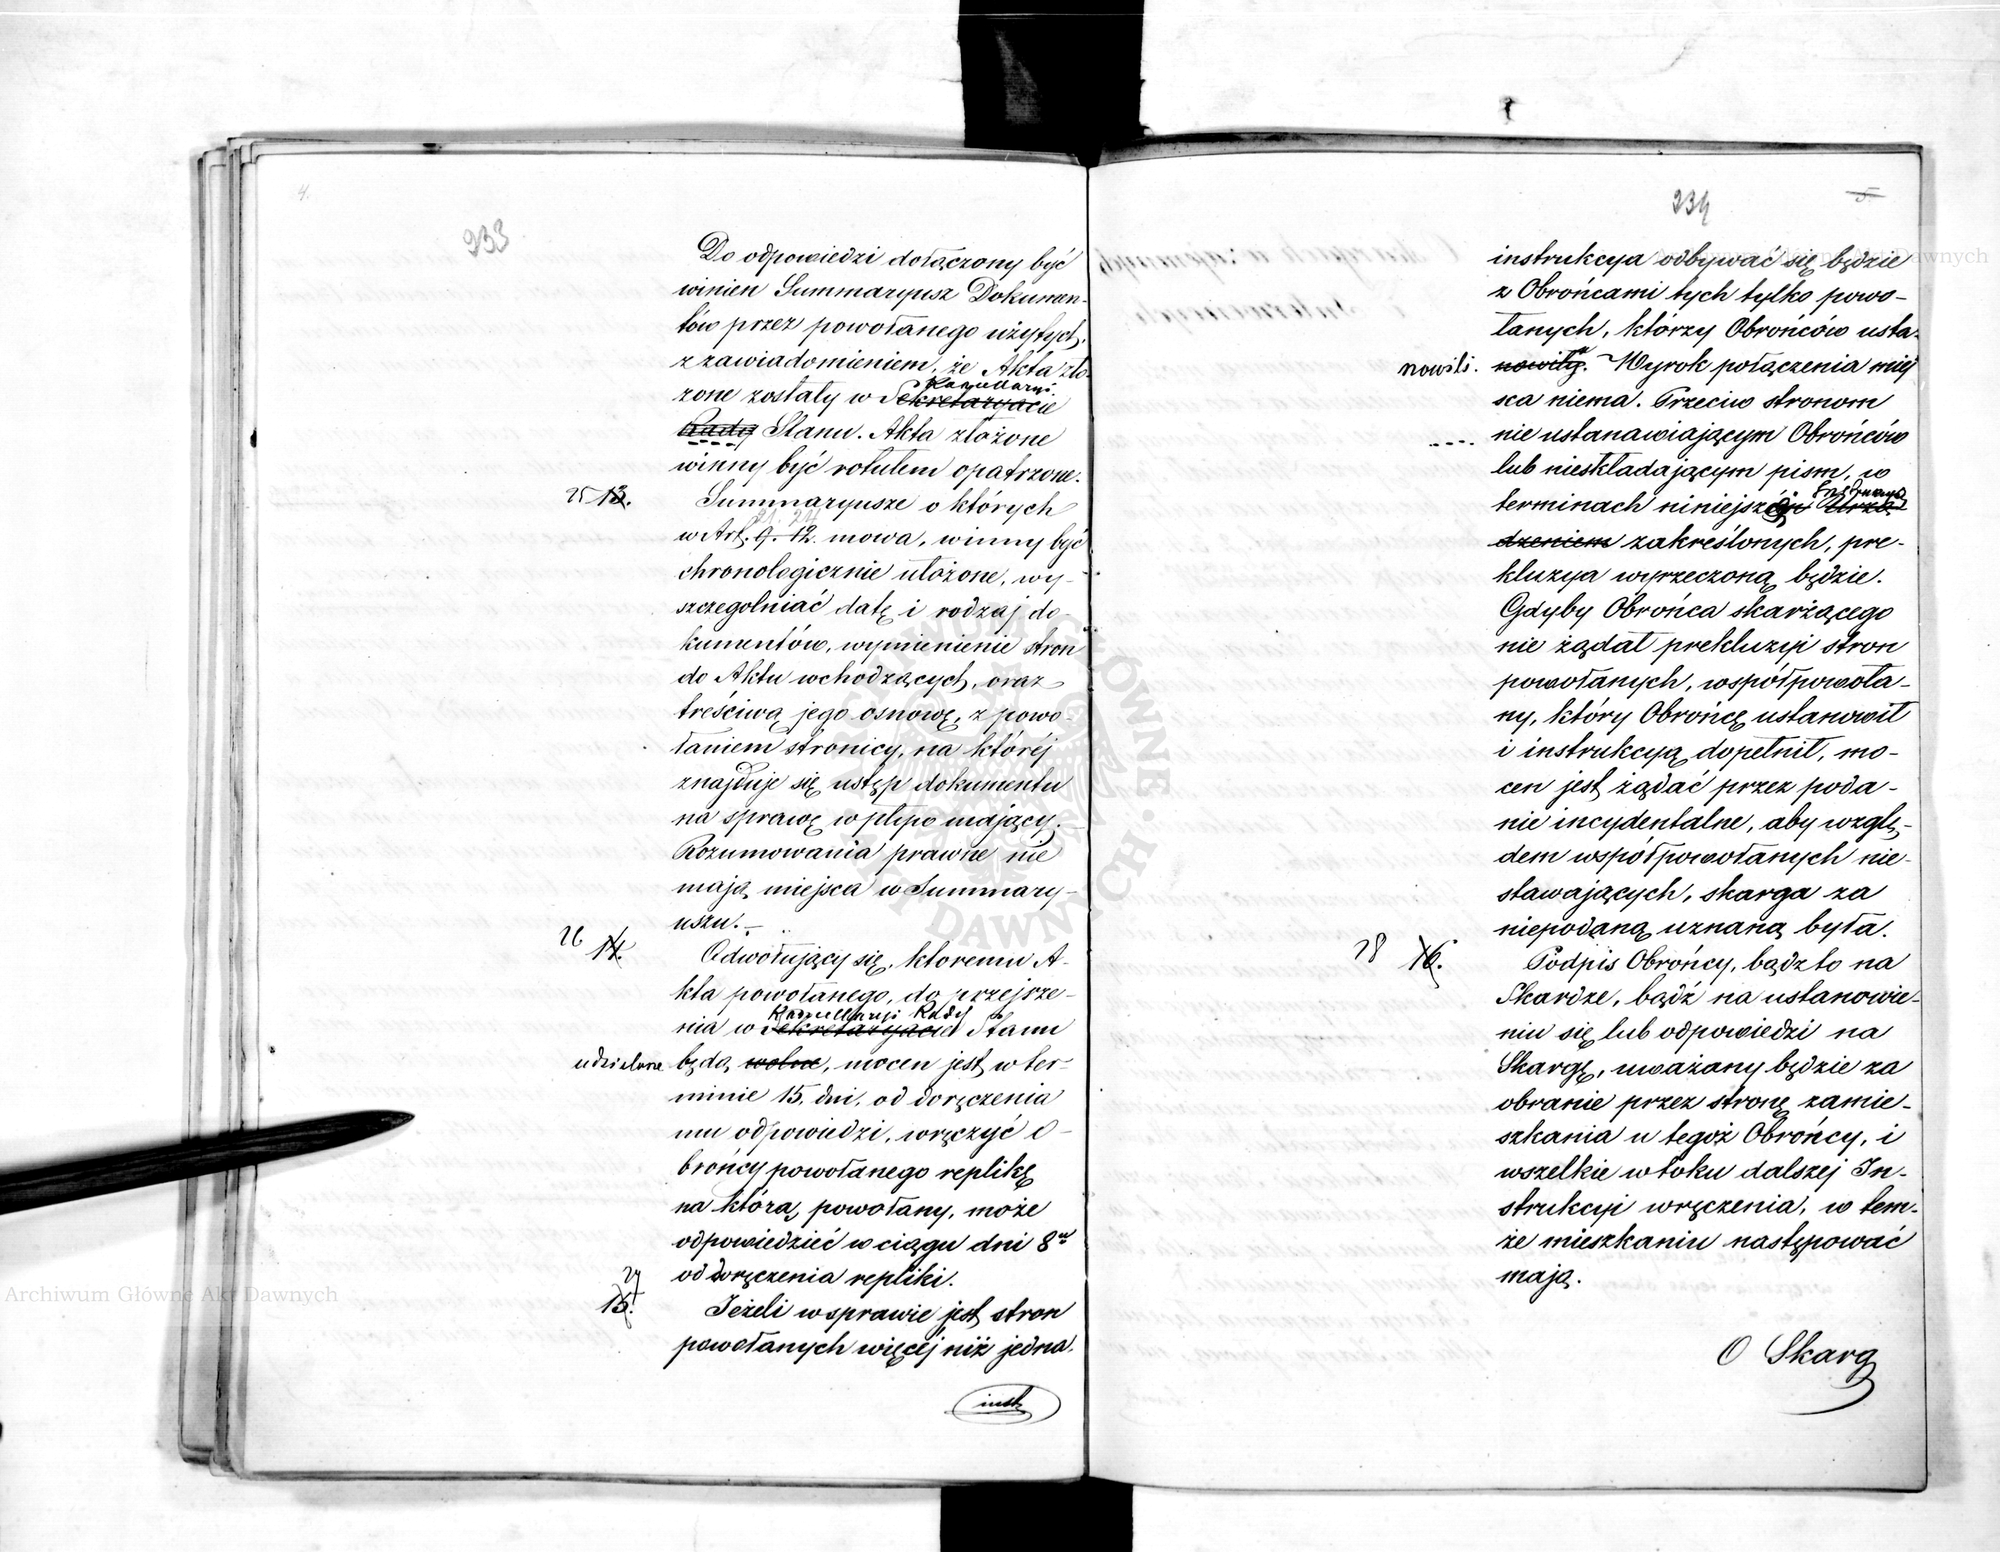 4.
233
Do odpowiedzi dołączony być
winien Summaryusz Dokumen-
tów przez powołanego użytych,
z zawiadomieniem, że Akta zło-
Kancellaryi
żone zostały w Sekretaryacie
Rady Stanu. Akta złożone
winny być rotułem opatrzone.
25 13. Summaryusze o których
w Art. 9. 12. mowa, winny być
chronologicznie ułożone, wy-
szczegolniać datę i rodzaj do-
kumentów, wymienienie stron
do Aktu wchodzących, oraz
treściwą jego osnowę, z powo-
łaniem stronicy, na któréj
znajduje się ustęp dokumentu
na sprawę wpływ mający.
Rozumowania prawne nie
mają miejsca w Summary-
uszu.
26 14. Odwołujący się, ktoremu A-
kta powołanego, do przejrze-
Kancellaryi Rady
nia w Sekretaryacie Stanu
udzielone będą wolne, mocen jest w ter-
minie 15. dni, od doręczenia
mu odpowiedzi, wręczyć O-
brońcy powołanego replikę
na którą powołany, może
odpowiedzieć w ciągu dni 8u
od doręczenia repliki.
27
15. Jeżeli w sprawie jest stron
powołanych więcéj niż jedna,
inst
234
5.
instrukcya odbywać się będzie
z Obrońcami tych tylko powo-
łanych, którzy Obrońców usta-
nowili. nowiły. Wyrok połączenia miej
sca niema. Przeciw stronom
nie ustanawiającym Obrońców
lub nieskładającym pism, w
Instrukcyą
terminach niniejszém Urzą-
dzeniem zakreślonych, pre-
kluzya wyrzeczoną będzie.
Gdyby Obrońca skarżącego
nie żądał prekluzyi stron
powołanych, współpowoła-
ny, który Obrońcę ustanowił
i instrukcyą dopełnił, mo-
cen jest żądać przez poda-
nie incydentalne, aby wzglę-
dem współpowołanych nie-
stawających, skarga za
niepodaną uznaną była.
28 16. Podpis Obrońcy, bądźto na
Skardze, bądź na ustanowie-
niu się lub odpowiedzi na
Skargę, uważany będzie za
obranie przez stronę zamie-
szkania u tegoż Obrońcy, i
wszelkie w toku dalszej In-
strukcyi wręczenia, w tem-
że mieszkaniu następować
mają.
O Skarg
Archiwum Główne Akt Dawnych
Archiwum Główne Akt Dawnych
ARCHIWUM GŁÓWNE AKT DAWNYCH